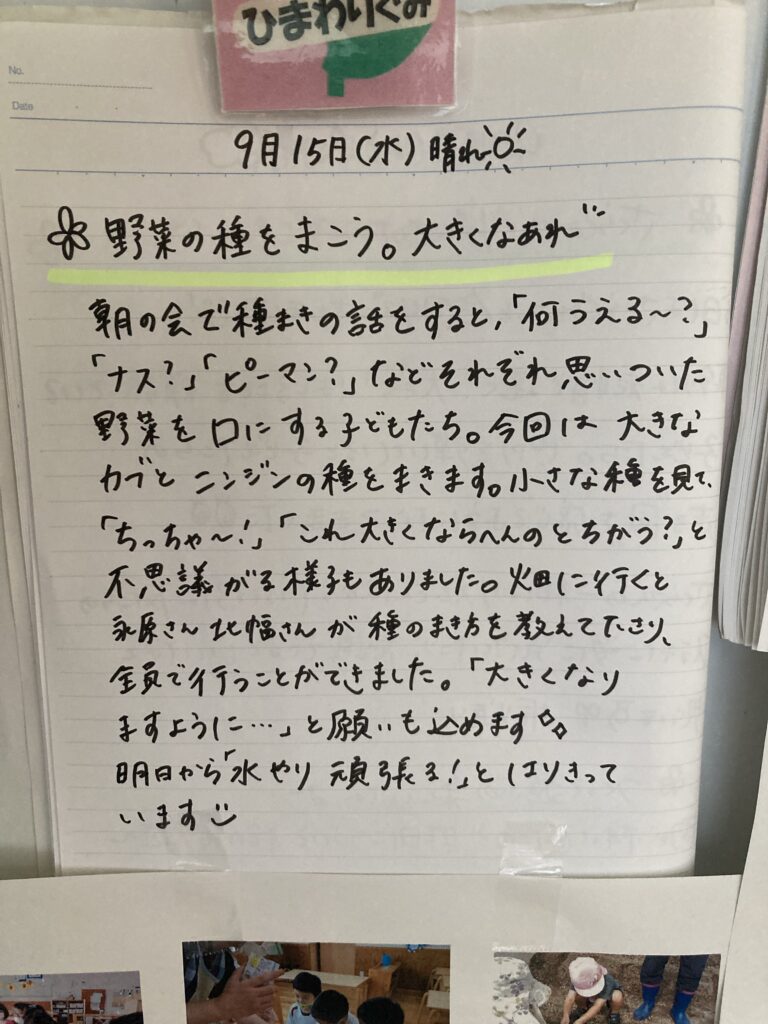 ひまわりぐみ
No.
Date
9月15日(水) 晴れ
野菜の種をまこう。大きくなあれ
朝の会で種まきの話をすると、「何うえる～?」
「ナス?」「ピーマン?」などそれぞれ思いついた
野菜を口にする子どもたち。今回は大きな
カブとニンジンの種をまきます。小さな種を見て、
「ちっちゃ～!」「これ大きくならへんのとちがう?」と
不思議がる様子もありました。畑に行くと
永原さん 北幅さんが種のまき方を教えて下さり、
全員で行うことができました。「大きくなり
ますように…」と願いも込めます
明日から「水やり頑張る!」とはりきって
います